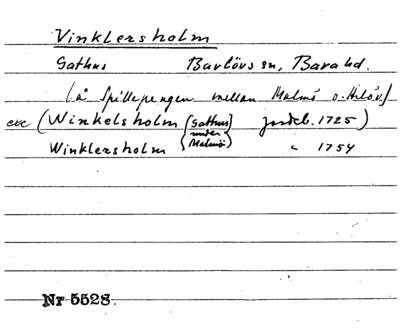 Vinklersholm
Gathus Burlövs sn, Bara hd.
(å Spillepengen mellan Malmö o. Arlöv)
exc (Winkelsholm {Gathus under Malmö} jordeb. 1725)
Winklersholm " 1754
Nr 5528.